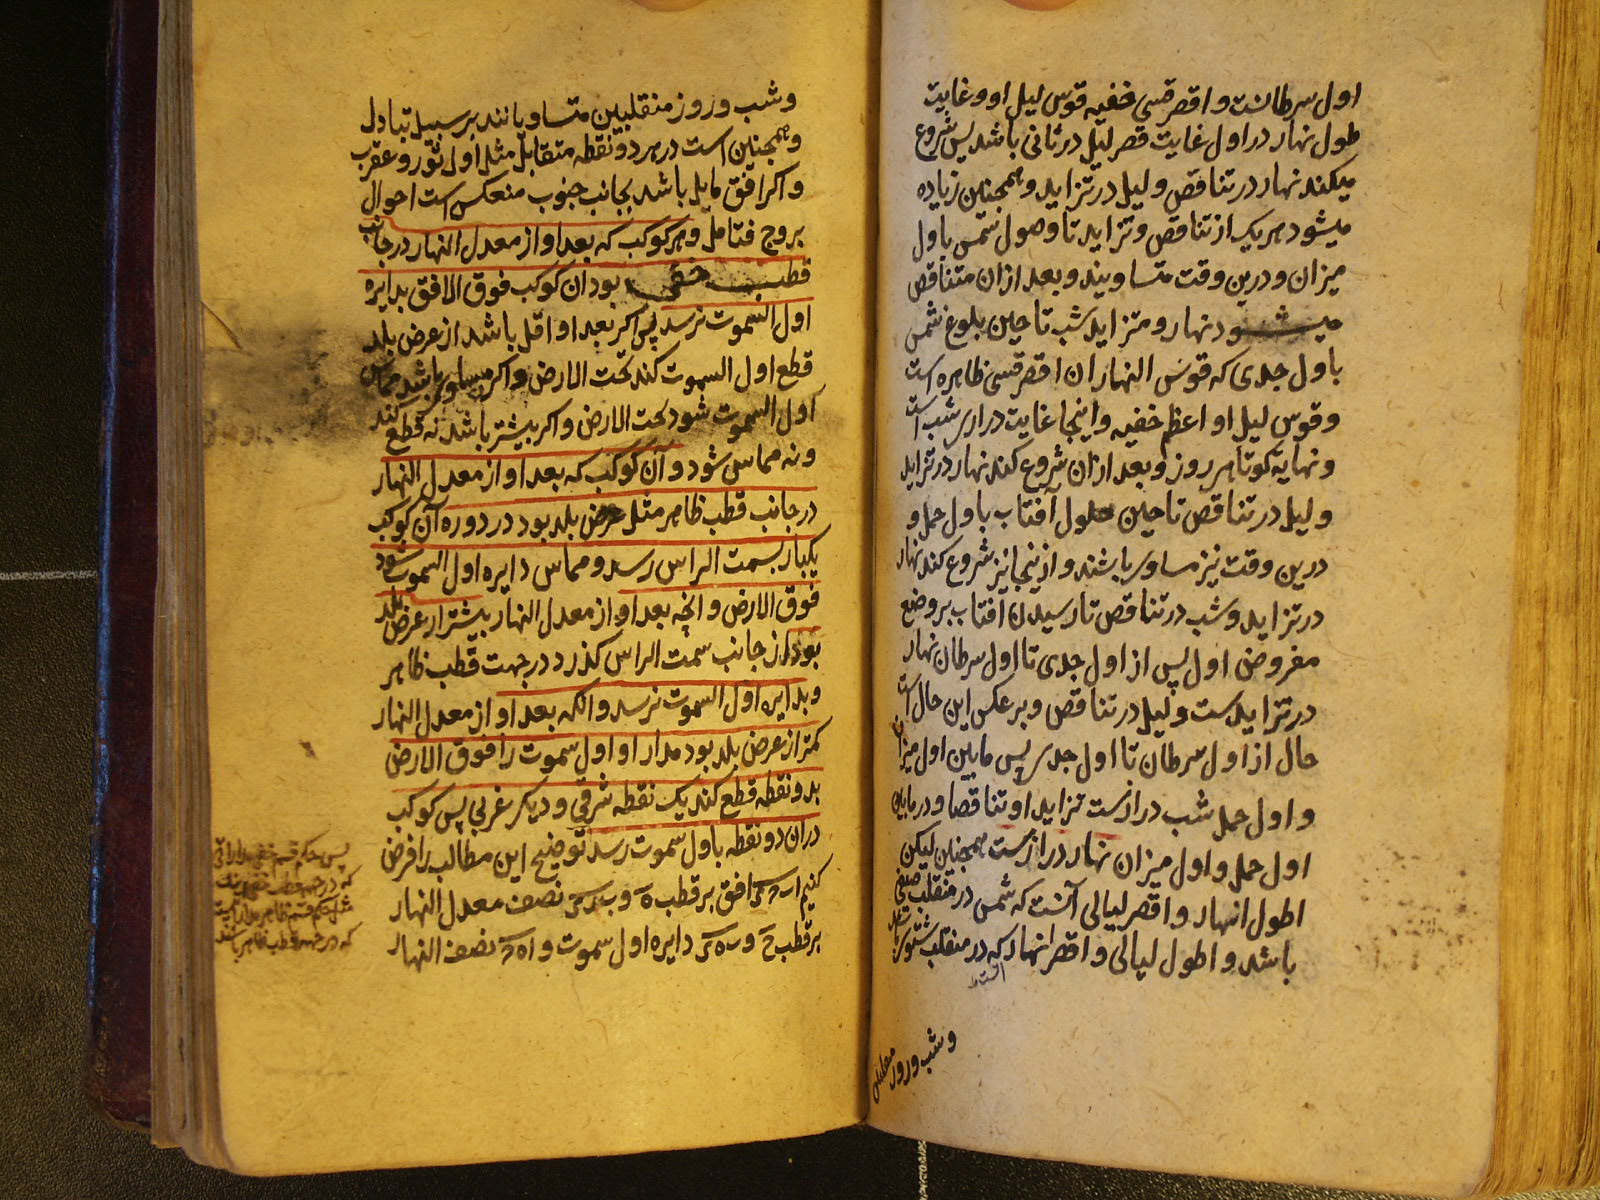 اول سرطانست و اقصر قسی خفیه قوس لیل او و غایت
طول نهار در اول غایت قصر لیل در ثانی باشد پس شروع
میکند نهار در تناقص و لیل در تزاید و همچنین زیاده
میشود هر یک از تناقص و تزاید تا وصول شمس باول
میزان و درین وقت متساویند و بعد ازان متناقص
میشود نهار و متزاید شب تا حین بلوغ شمس
باول جدی که قوس النهار ان اقصر قسی ظاهره است
و قوس لیل او اعظم خفیه و اینجا غایت درازی شب است
و نهایة کوتاهی روز و بعد ازان شروع کند نهار در تزاید
و لیل در تناقص تا حین حلول آفتاب باول حمل و
درین وقت نیز مساوی باشند و ازینجا نیز شروع کند نهار
در تزاید و شب در تناقص تا رسیدن افتاب بر وضع
مفروض اول پس از اول جدی تا اول سرطان نهار
در تزاید ست و لیل در تناقص و بر عکس این حال است
حال از اول سرطان تا اول جدی پس مابین اول میزان
و اول حمل شب درازست تزایدا و تناقصا و در مابین
اول حمل و اول میزان نهار درازست همچنین لیکن
اطول انهار و اقصر لیالی آنست که شمس در منقلب صیفی
باشد و اطول لیالی و اقصر انهار که در منقلب شتوی باشد
وشب وروز
وشب و روز منقلبین متساویانند بر سبیل تبادل
و همچنین است در هر دو نقطه متقابل مثل اول ثور و عقرب
و اکر افق مایل باشد بجانب جنوب منعکس است احوال
بروج فتامل و هر کوکب که بعد او از معدل النهار در جانب
قطب خفی بود ان کوکب فوق الافق بدایره
اول السموت نرسد پس اکر بعد او اقل باشد از عرض بلد
قطع اول السموت کند تحت الارض و اکر مساوی باشد مماس
اول السموت شود تحت الارض و اکر بیشتر باشد نه قطع کند
و نه مماس شود و آن کوکب که بعد او از معدل النهار
در جانب قطب ظاهر مثل عرض بلد بود در دوره آن کوکب
یکبار بسمت الراس رسد و مماس دایره اول السموت شود
فوق الارض و انچه بعد او از معدل النهار بیشتر از عرض بلد
بود از جانب سمت الراس کذرد در جهت قطب ظاهر
و بدایره اول السموت نرسد و انکه بعد او از معدل النهار
کمتر از عرض بلد بود مدار او اول سموت را فوق الارض
بدو نقطه قطع کند یک نقطه شرقی و دیکر غربی پس کوکب
دران دو نقطه باول سموت رسد توضیح این مطالب را فرض
کنیم افق بر قطب ه و نصف معدل النهار
بر قطب ح و دایره اول سموت و نصف النهار
پس حکم قسم خفی مداراتی
که در جهة قطب خفی
مثل حکم قسم ظاهر مداراتیست
که در جهة قطب ظاهر باشند